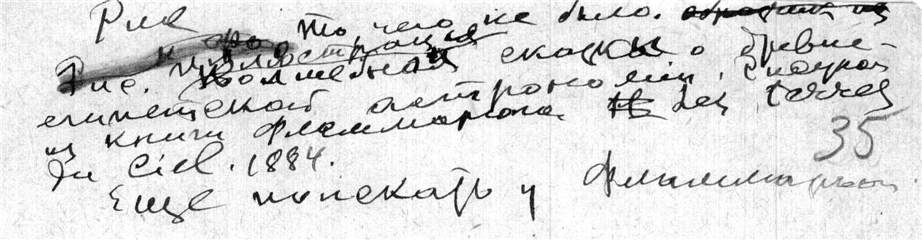 Рис
То, чего не было.
Рис. Иллюстрация
Волшебная сказка о древне-
египетской астрономии.
из книги Фламмариона. Les terres
du Ciel. 1884.
35
Еще поискать у Фламмариона.